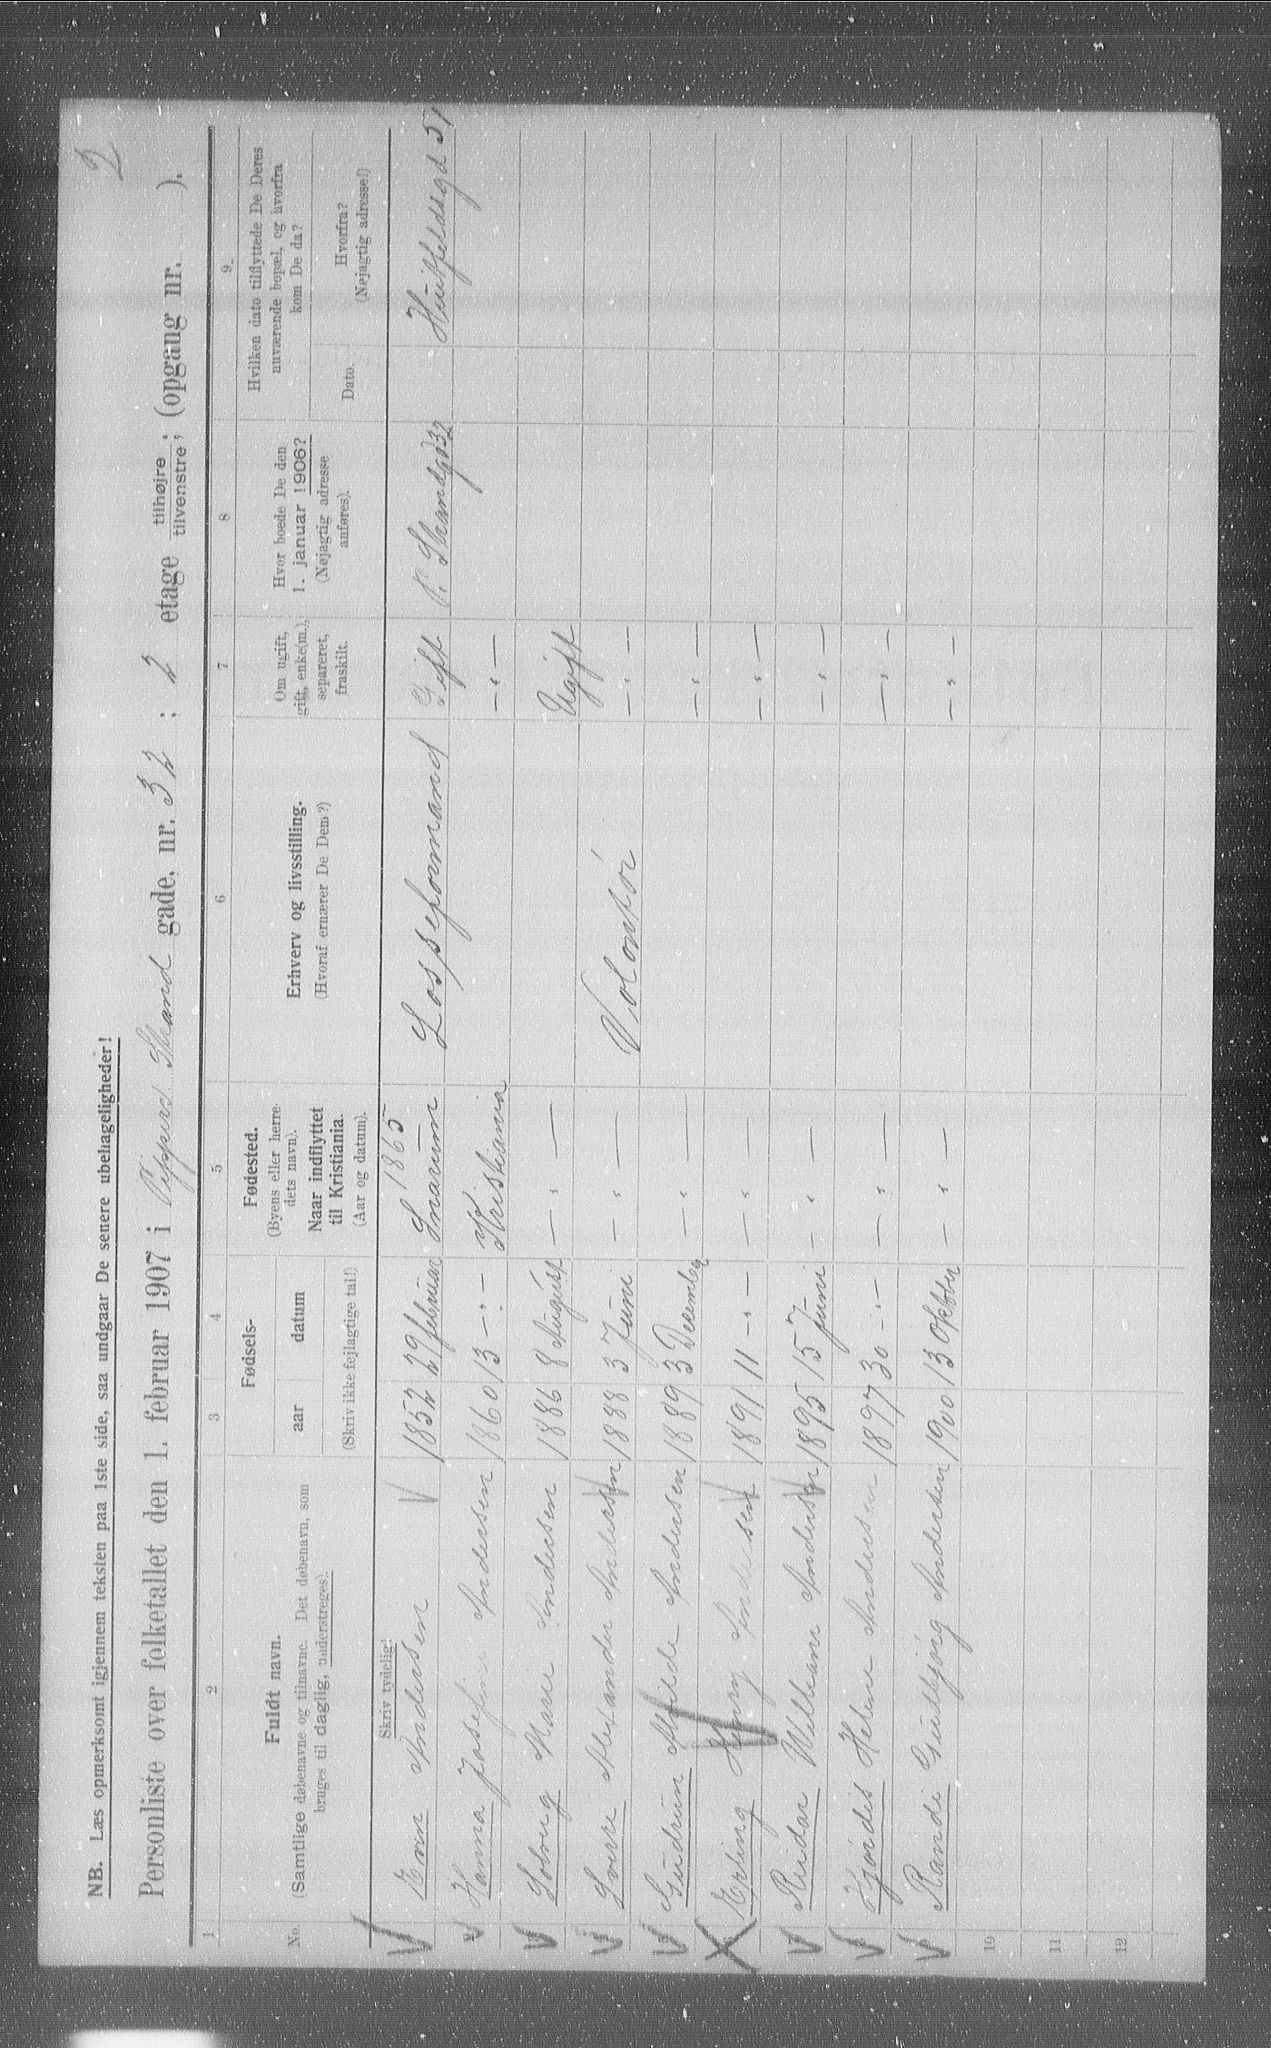 2
NB. Læs opmerksomt igjennem teksten paa 1ste side, saa undgaar De senere ubehageligheder!
Personliste over folketallet den 1. februar 1907 i Pipperv. Strand gade, nr. 32 ; 2 etage tilhøjre / tilvenstre; (opgang nr. ).
1 2 3 4 5 6 7 8 9.
No. Fuldt navn. (Samtlige døbenavne og tilnavne. Det døbenavn, som bruges til daglig, understreges).
Fødsels- aar datum (Skriv ikke fejlagtige tal!)
Fødested. (Byens eller herredets navn). Naar indflyttet til Kristiania. (Aar og datum).
Erhverv og livsstilling. (Hvoraf ernærer De Dem?)
Om ugift, gift, enke(m.), separeret, fraskilt.
Hvor boede De den 1. januar 1906? (Nøjagtig adresse anføres).
Hvilken dato tilflyttede De Deres nuværende bopæl, og hvorfra kom De da?
Dato. Hvorfra? (Nøjagtig adresse!)
Skriv tydelig!
1865
Andersen 1852 29 februar Snarum Losseformand Gift P. Strandgd 32 Huitfeldsgd 51
2 Hanna Josefine Andersen 1860 13 -"- Kristiania -"-
Solveig Marie Andersen 1886 8 August -"- Ugift
Sverre Alexander Andersen 1888 3 Juni -"- Volontør -"-
Gudrun Andersen 1889 3 December -"- -"-
Erling Henry Andersen 1891 11 -"- -"- -"-
Reidar William Andersen 1895 15 Juni -"- -"-
Hjørdis Helene Andersen 1897 30 -"- -"- -"-
Randi Gudbjørg Andersen 1900 13 Oktober -"- -"-
10
11
12